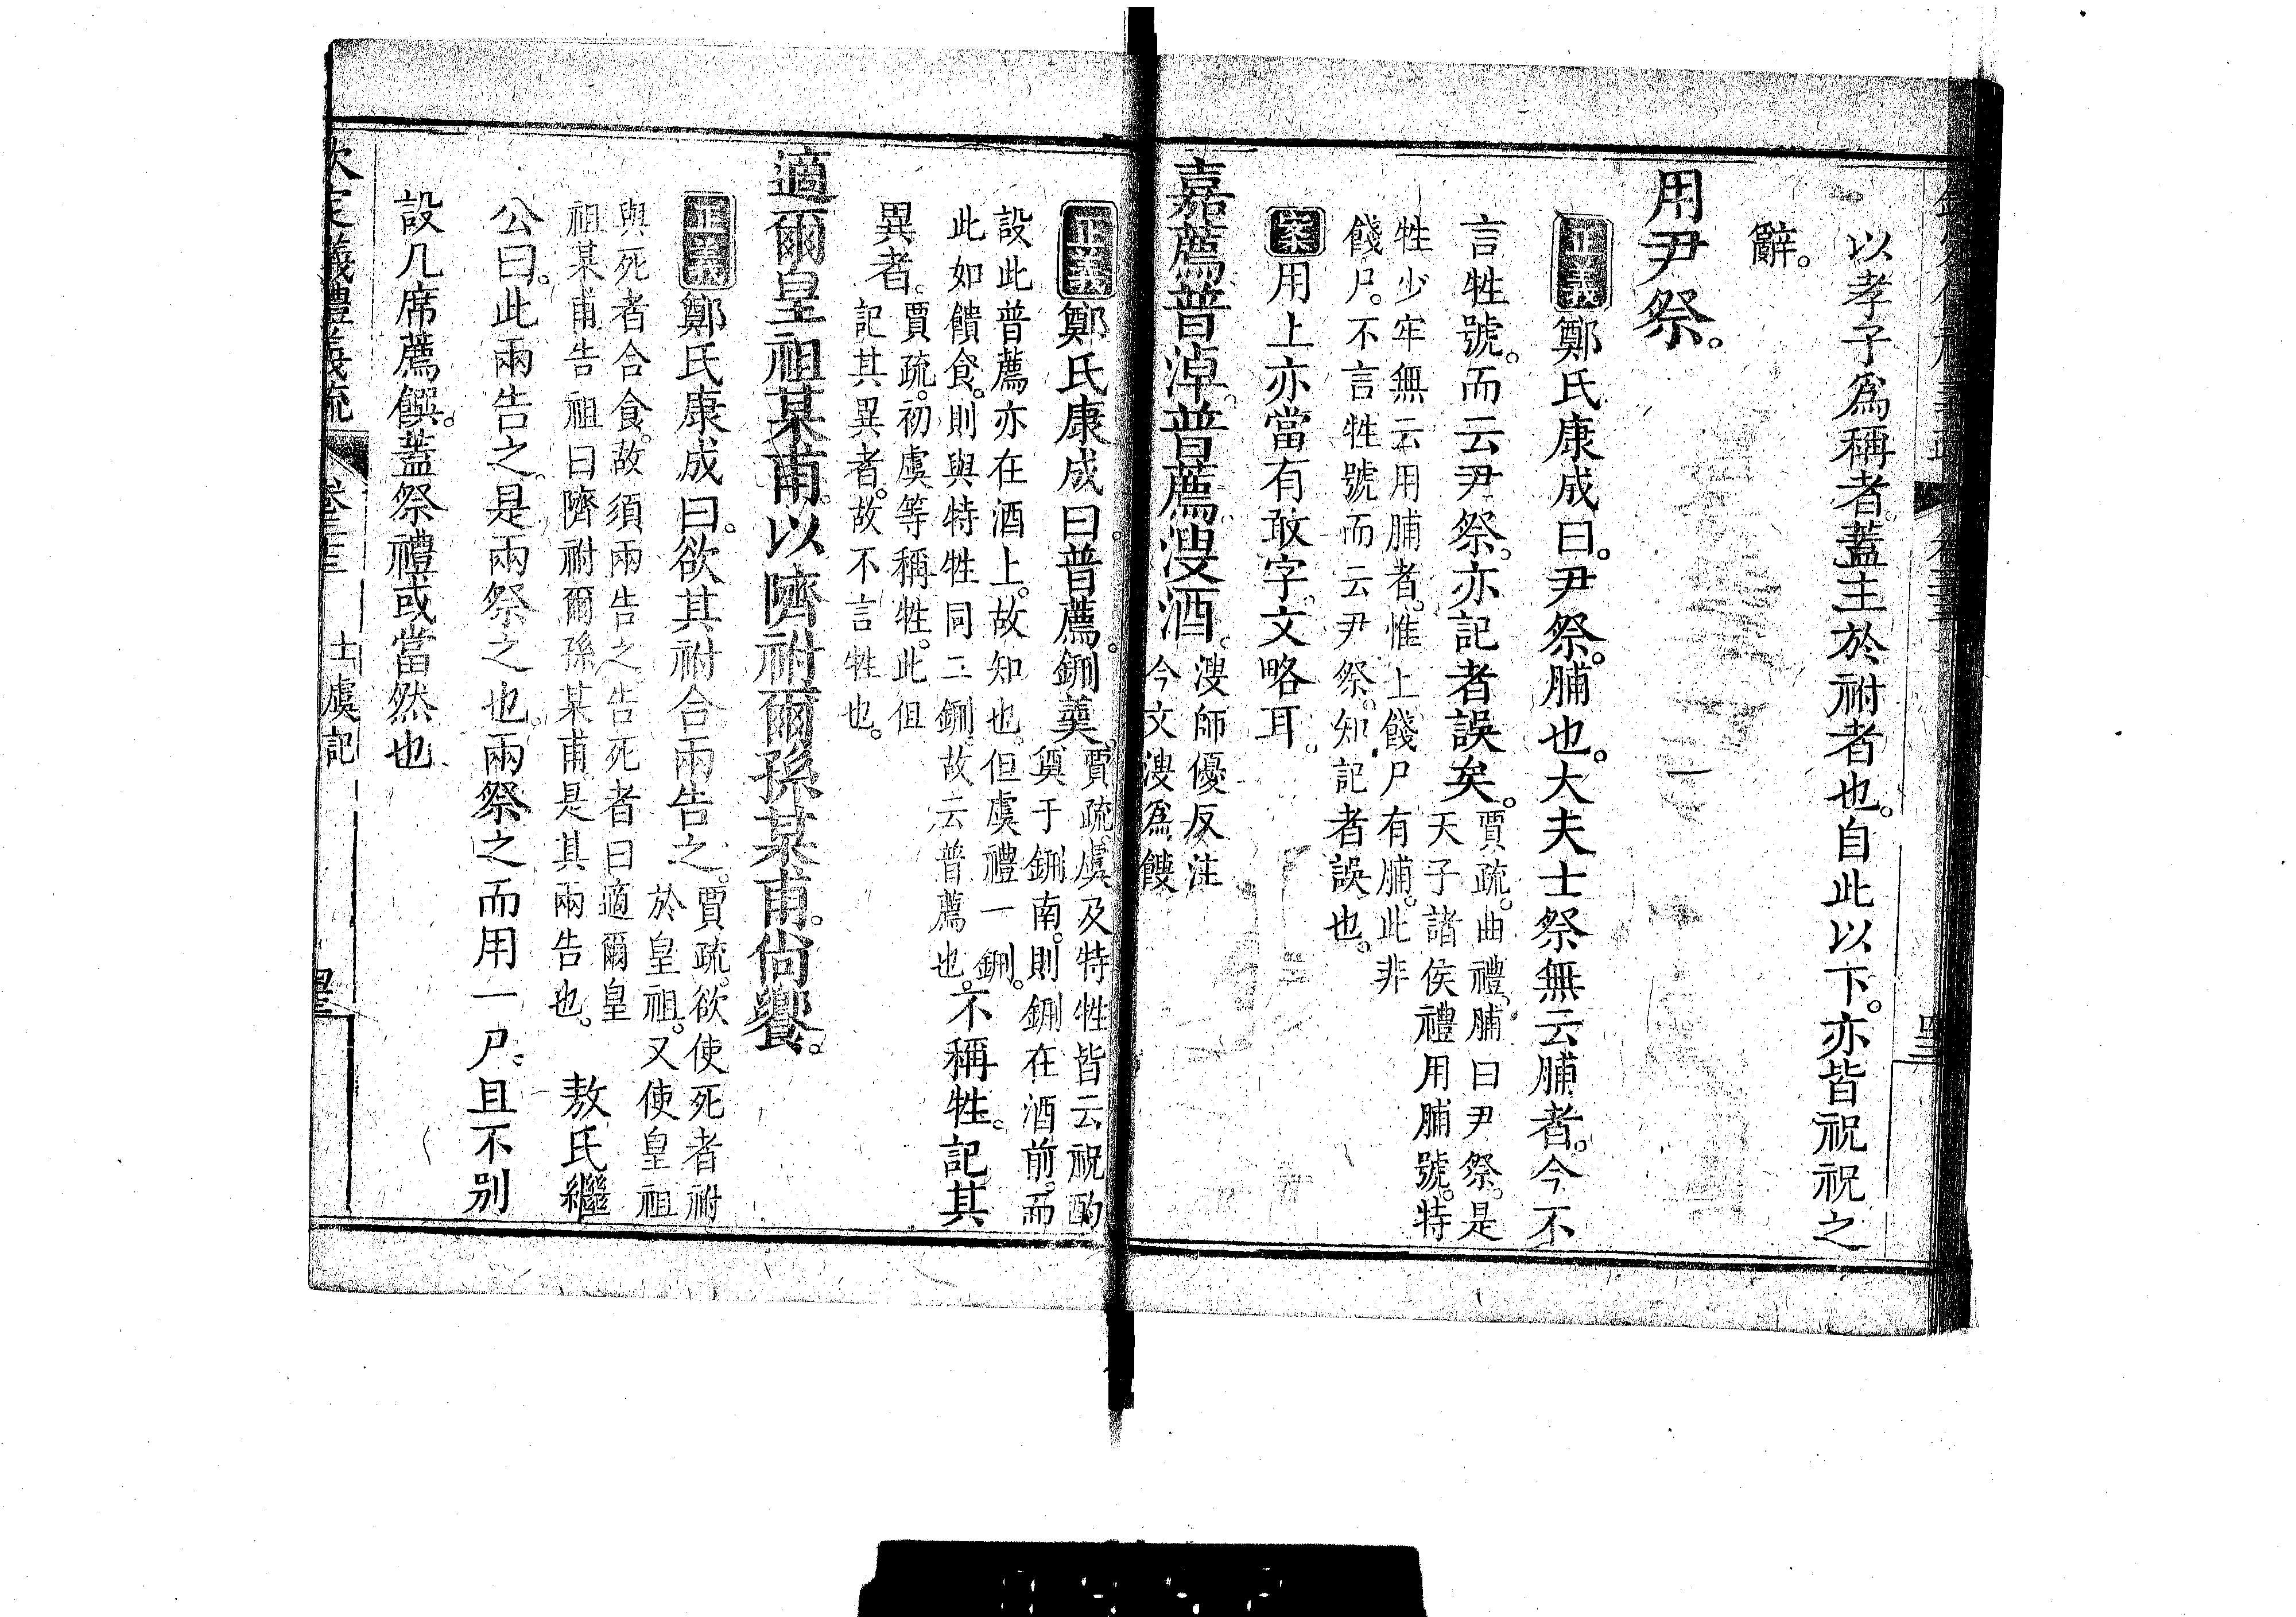 以孝子爲稱者。蓋主於祔者也。自此以下。亦皆祝祝之
辭。
用尹祭。
正義鄭氏康成曰。尹祭。脯也。大夫士祭無云脯者。今不
言牲號。而云尹祭。亦記者誤矣。
賈疏。曲禮。脯曰尹祭。是
天子諸侯禮用脯號。特
牲少牢無云用脯者。惟上餞尸有脯。此非
餞尸。不言牲號而云尹祭。知記者誤也。
案用上亦當有敢字。文略耳。
嘉薦普淖。普薦溲酒。
溲師優反注
今文溲爲餿
正義鄭氏康成曰。普薦。鉶羹。
賈疏。虞及特牲皆云祝酌
奠于鉶南。則鉶在酒前。而
設此普薦亦在酒上。故知也。但虞禮一鉶。
此如饋食。則與特牲同二鉶。故云普薦也。
不稱牲。記其
異者。
賈疏。初虞等稱牲。此但
記其異者。故不言牲也。
適爾皇祖某甫。以隮祔爾孫某甫。尚饗。
正義鄭氏康成曰。欲其祔合兩告之。
賈疏。欲使死者祔
於皇祖。又使皇祖
與死者合食。故須兩告之。告死者曰適爾皇
祖某甫。告祖曰隮祔爾孫某甫。是其兩告也。
敖氏繼
公曰。此兩告之。是兩祭之也。兩祭之而用一尸。且不别
設几席薦饌。蓋祭禮或當然也
欽定儀禮義疏 卷三十三 士虞記